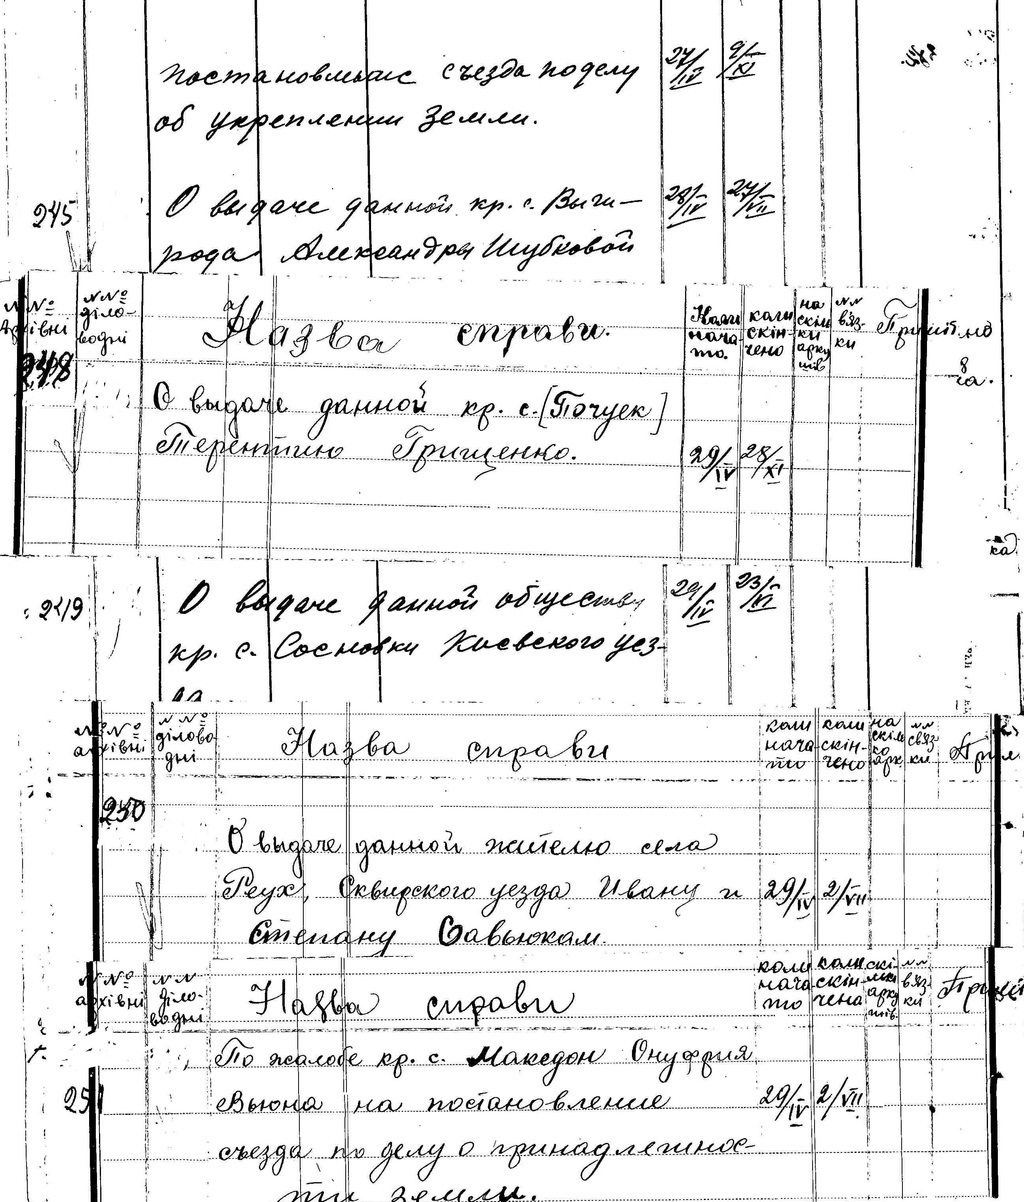 постановление съезда по делу 27/IV 9/XI
об укреплении земли.
245 О выдаче данной кр. с. Выги- 28/IV 27/VII
рода Александры Шубковой
№№ архівні №№ діло-водні Назва справи. Коли начато. коли скінчено на скільки аркушів №№ в'язки
248
О выдаче данной кр. с. [Почуек]
Терентию Грищенко. 29/IV 28/XI
249 О выдаче данной обществу 29/IV 23/VI
кр. с. Сосновки Киевского уез-
да
№№ архівні №№ діловодні Назва справи коли начато коли скінчено на скілько арк. №№ связки
250
О выдаче данной жителю села
Реух, Сквирского уезда Ивану и 29/IV 2/VII
Степану Савьюкам.
№№ архівні №№ діло-водні Назва справи коли начато коли скінчена скільки аркушів №№ в'язки
По жалобе кр. с. Македон Онуфрия
251 Вьюна на постановление 29/IV 2/VII
съезда по делу о принадлежнос-
ти земли.